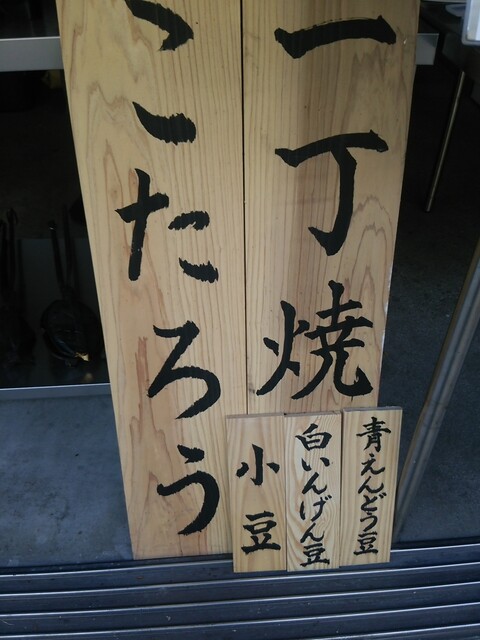 一丁焼
こたろう
青えんどう豆
白いんげん豆
小豆